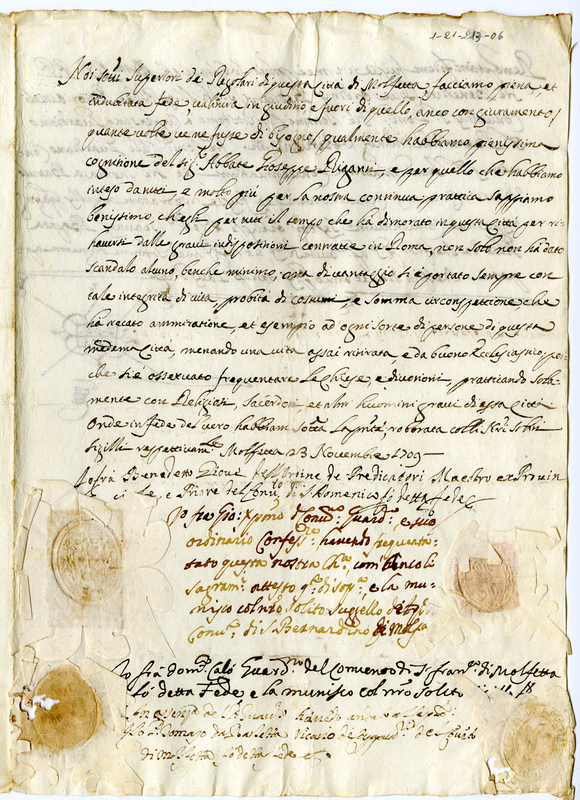 1-21-213-06
Noi sotti Superiori de Regolari di questa Città di Molfetta facciamo piena, et
indubitata fede, etiam in giuditio e fuori di quello, anco con giuramento,
quante volte ve ne fusse di bisogno, qualmente habbiamo pienissima
cognitione del sigr Abbate Gioseppe Riganti, e per quello che habbiamo
inteso da tutti, e molto più per la nostra continua prattica sappiamo
benissimo, ch'egli per tutto il tempo che hà dimorato in questa Città per ri
haversi dalle gravi indispositioni contratte in Roma, non solo non ha dato
scandalo alcuno, benche minimo, mà di vantaggio si è portato sempre con
tale integrità di vita, probità di costumi, e somma circonspettione che
ha recato ammiratione, et esempio ad ogni sorte di persone di questa
medema Città, menando una vita assai ritirata e da buono Ecclesiastico, poi
che si è osservato frequentare le Chiese, e divotioni, pratticando sola-
mente con Religiosi, Sacerdoti, et altri huomini gravi di essa Città
Onde in fede del vero habbiam sotta la pnte, roborata colli nri soliti
sigilli respettivamte Molfetta 23 Novembre 1709
Io frà Benedetto Piove dell'Ordine de Predicatori Maestro ex Provin
ciale, e Priore del Convto di S. Domenico fò detta fede
Io fra Gio: Xpmo Convo Guardno e suo
ordinario Confesre havendo frequenta-
tato questa nostra Cha con
Sagramti attesto qto di sopa, e la mu-
nisco col nro solito suggello di qto
Convto di S. Bernardino di Molfa
Io frà Domco Calò Guardno del Convento di S. Franco di Molfetta
fò detta fede e la munisco col nro solito
di Molfetta fò detta fede